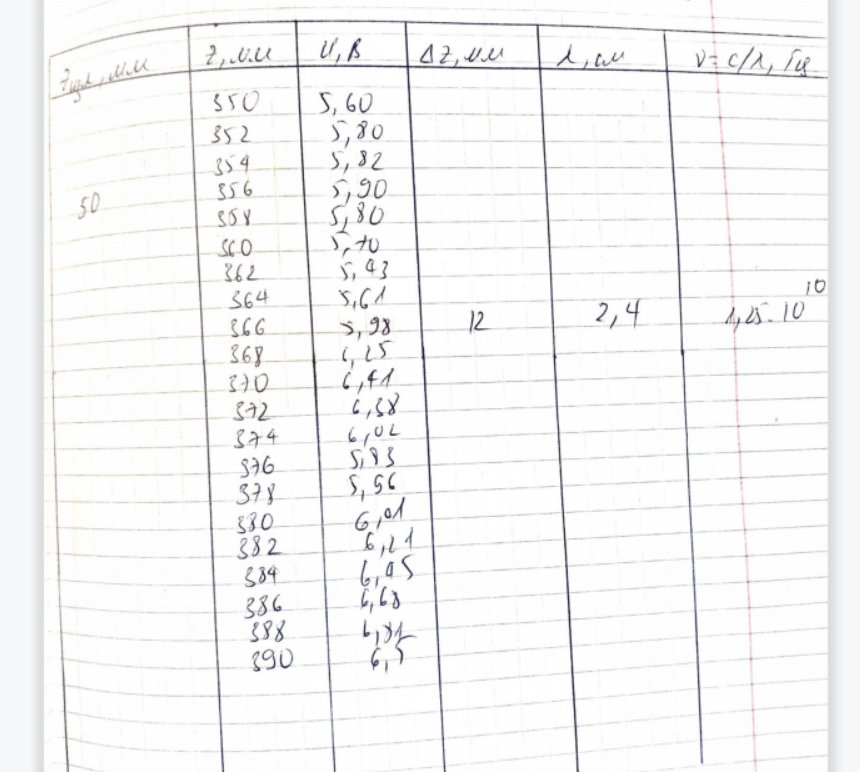 Z, мм U, В ΔZ, мм λ, см ν = c/λ, Гц
350 5,60
352 5,80
354 5,82
356 5,90
50
358 5,80
360 5,70
362 5,43
364 5,61
366 5,98 12 2,4 1,25·10^10
368 6,25
370 6,41
372 6,38
374 6,02
376 5,83
378 5,56
380 6,01
382 6,21
384 6,45
386 6,68
388
390 6,5